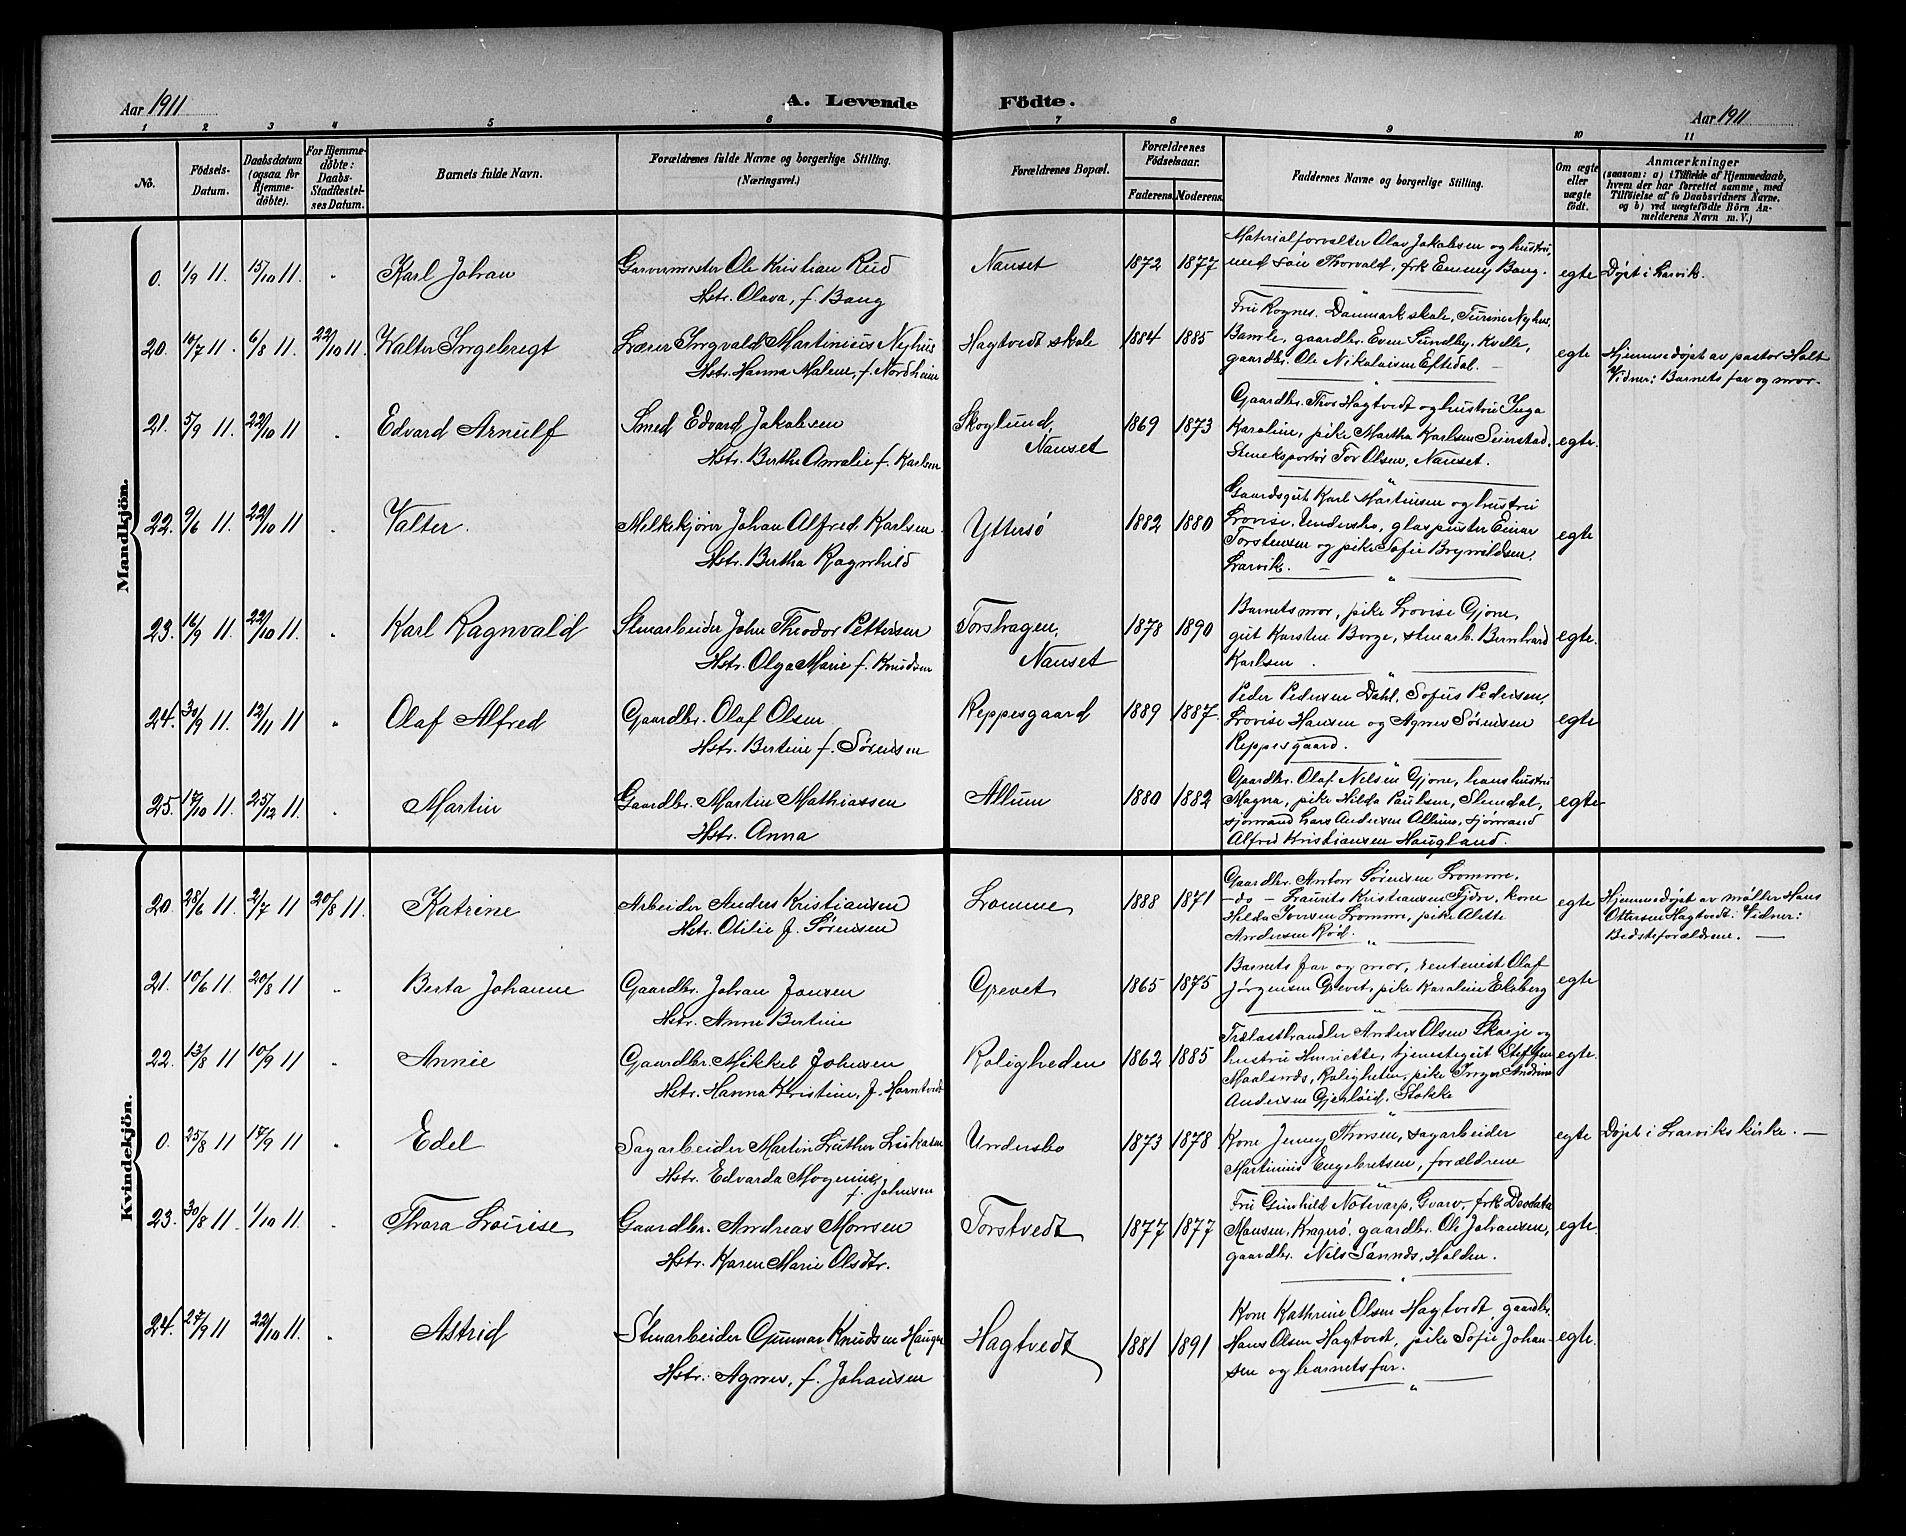 Aar 1911
A. Levende
Födte.
Aar 1911
1 2 3 4 5 6 7 8 9 10 11
No.
Födsels-
Datum.
Daabsdatum
(ogsaa for
Hjemme-
döbte).
For Hjemme-
döbte:
Daabs-
Stadfæstel-
ses Datum.
Barnets fulde Navn.
Forældrenes fulde Navne og borgerlige Stilling.
(Næringsvei.)
Forældrenes Bopæl.
Forældrenes
Födselsaar.
Faderens. Moderens.
Faddernes Navne og borgerlige Stilling.
Om ægte
eller
uægte
födt.
Anmærkninger
(saasom: a) i Tilfælde af Hjemmedaab,
hvem der har forrettet samme, med
Tilföielse af to Daabsvidners Navne.
og b) ved uægtefödte Börn An-
melderens Navn m. V.)
Mandkjön.
0. 1/9 11. 15/10 11. " Karl Johan
Garvermester Ole Kristian Rud
Hstr. Olava, f. Bang
Nanset
1872 1877
Materialforvalter Olav Jakobsen og hustru,
med søn Thorvald, frk Emmy Bang.
egte
Døpt i Larvik.
20. 10/7 11. 6/8 11. 22/10 11. Walter Ingebregt
Lærer Ingvald Martinius Nyhus
Hstr. Hanna Malene, f. Nordheim
Hagtvedt skole
1884 1885
Fru Rognes, Danmark skole, Turine Nyhus,
Bamle, gaardbr. Even Sundby, Kvelle,
gaardbr. Ole Nikolaisen Eftedal.
egte
Hjemmedøpt av pastor Holt
Vidner: Barnets far og mor.
21. 5/9 11. 22/10 11 " Edvard Arnulf
Smed Edvard Jakobsen
Hstr. Berthe Amalie f. Karlsen
Skoglund,
Nanset
1869 1873
Gaardbr. Thor Hagtvedt og hustru Inga
Karoline, pike Martha Karlsen Seierstad.
Steneksportør Tov Olsen, Nanset.
egte.
22. 9/6 11. 22/10 11 " Valter.
Melkekjører Johan Alfred Karlsen
Hstr. Bertha Ragnhild
Yttersö
1882 1880
Gaardsgut Karl Martinsen og hustru
Lovise, Undersbo, glaspuster Einar
Torstensen og pike Sofie Brynildsen,
Larvik.
egte
23. 16/9 11. 22/10 11. " Karl Ragnvald
Stenarbeider John Theodor Pettersen
Hstr. Olga Marie f. Knudsen
Torshagen,
Nanset
1878 1890
Barnets mor, pike Lovise Gjone,
gut Karsten Borge, stenarb. Bernhard
Karlsen.
egte.
24. 30/9 11. 12/11 11 " Olaf Alfred
Gaardbr. Olaf Olsen
Hstr. Bertine f. Sørensen
Reppesgaard
1889 1887
Peder Pedersen Dahl, Sofus Pedersen,
Lovise Hansen og Agnes Sørensen
Reppesgaard.
egte
25. 17/10 11. 25/12 11. " Martin
Gaardbr. Martin Mathiassen
Hstr. Anna
Allum
1880 1882
Gaardbr. Olaf Nilsen Gjone, hans hustru
Magna, pike Hilda Paulsen, Stendal,
sjømand Lars Andersen Allum, sjømand
Alfred Kristiansen Haugland.
egte
Kvindekjön.
20. 28/6 11. 2/7 11 20/8 11. Katrine
Arbeider Anders Kristiansen
Hstr. Otilie f. Sørensen
Lomme
1888 1871
Gaardbr. Anton Sørensen Lomme,
-do- Lauritz Kristiansen Fjære, kone
Hilda Iversen Lomme, pike Alette
Andersen Rød.
egte
Hjemmedøpt av møller Hans
Ottersen Hagtvedt. Vidner:
Bedsteforældrene.
21. 10/6 11. 20/8 11. " Berta Johanne
Gaardbr. Johan Jansen
Hstr. Anne Bertine
Grevet
1865 1875
Barnets far og mor, rentenist Olaf
Jørgensen Grevet, pike Karoline Ekeberg
egte
22. 13/8 11 10/9 11 " Annie
Gaardbr. Mikkel Johnsen
Hstr. Hanna Kristine, f. Hamtvedt
Roligheden
1862 1885
Trælasthandler Anders Olsen Skarje og
hustru Henriette, tjenestegut Steffen
Maalsnes, Roligheten, pike Inger Andrine
Andersen Gjerløid, Stokke
egte.
0. 25/8 11 17/9 11 " Edel
Sagarbeider Martin Luther Lukasen
Hstr. Edvarda Mogenine
f. Johnsen
Undersbo
1873 1878
Kone Jenny Thorsen, sagarbeider
Martinius Engebretsen, forældrene
egte
Døpt i Larviks kirke.
23. 30/8 11 1/10 11. " Thora Louise
Gaardbr. Andreas Monsen
Hstr. Karen Marie Olsdtr.
Torstvedt
1877 1877
Fru Gunhild Notevarp, Gvarv, frk Deodata
Hansen, Kragerø, gaardbr. Ole Johansen,
gaardbr. Nils Sannes, Holden.
egte.
24. 27/9 11 22/10 11. " Astrid
Stenarbeider Gunnar Knudsen Haugen
Hstr. Agnes, f. Johansen
Hagtvedt
1881 1891
Kone Kathrine Olsen Hagtvedt, gaardbr.
Hans Olsen Hagtvedt, pike Sofie Johan-
sen og barnets far.
egte.